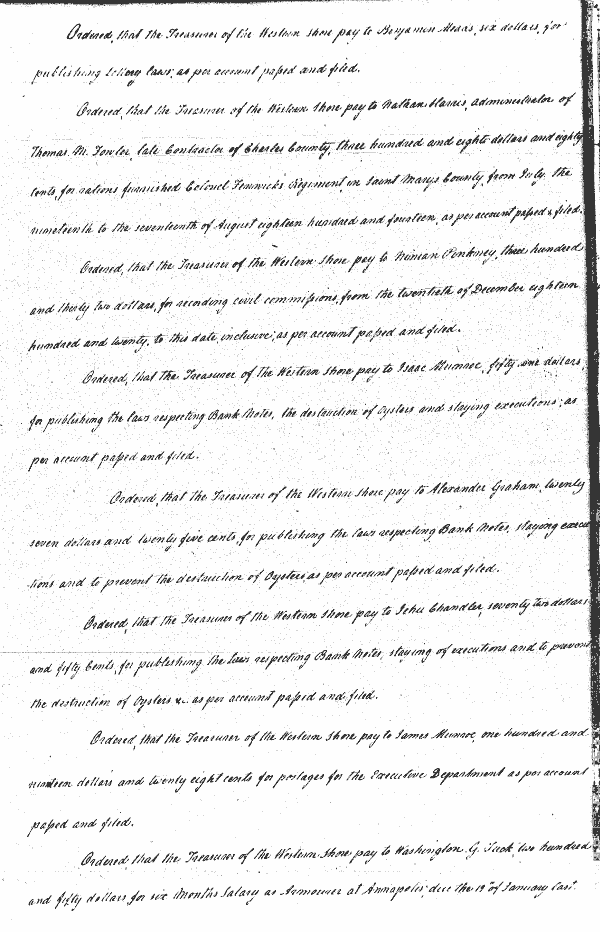 Ordered, that the Treasurer of the Western Shore pay to Benjamin Mead's, six dollars, for
publishing Lottery laws; as per account passed and filed.
Ordered, that the Treasurer of the Western Shore pay to Nathan Harris, administrator of
Thomas M. Fowler, late Contractor of Charles County, three hundred and eight dollars and eighty
cents, for rations furnished Colonel Fenwick's Regiment, in Saint Marys County, from July, the
nineteenth to the seventeenth of August eighteen hundred and fourteen, as per account passed & filed.
Ordered, that the Treasurer of the Western Shore pay to Ninian Pinkney, three hundred
and thirty two dollars, for recording civil commissions, from the twentieth of December eighteen
hundred and twenty, to this date, inclusive; as per account passed and filed.
Ordered, that the Treasurer of the Western Shore pay to Isaac Munroe, fifty one dollars,
for publishing the laws respecting Bank Notes, the destruction of Oysters and staying executions; as
per account passed and filed.
Ordered, that the Treasurer of the Western Shore pay to Alexander Graham, twenty
seven dollars and twenty five cents, for publishing the laws respecting Bank Notes, staying execu
tions and to prevent the destruction of Oysters, as per account passed and filed.
Ordered, that the Treasurer of the Western Shore pay to Jehu Chandler, seventy two dollars
and fifty Cents, for publishing the laws respecting Bank Notes, staying of executions and to prevent
the destruction of Oysters &c. as per account passed and filed.
Ordered, that the Treasurer of the Western Shore pay to James Munroe, one hundred and
nineteen dollars and twenty eight cents for postages for the Executive Department as per account
passed and filed.
Ordered, that the Treasurer of the Western Shore pay to Washington G. Tuck, two hundred
and fifty dollars for six Months Salary as Armourer at Annapolis; due the 19th of January last.